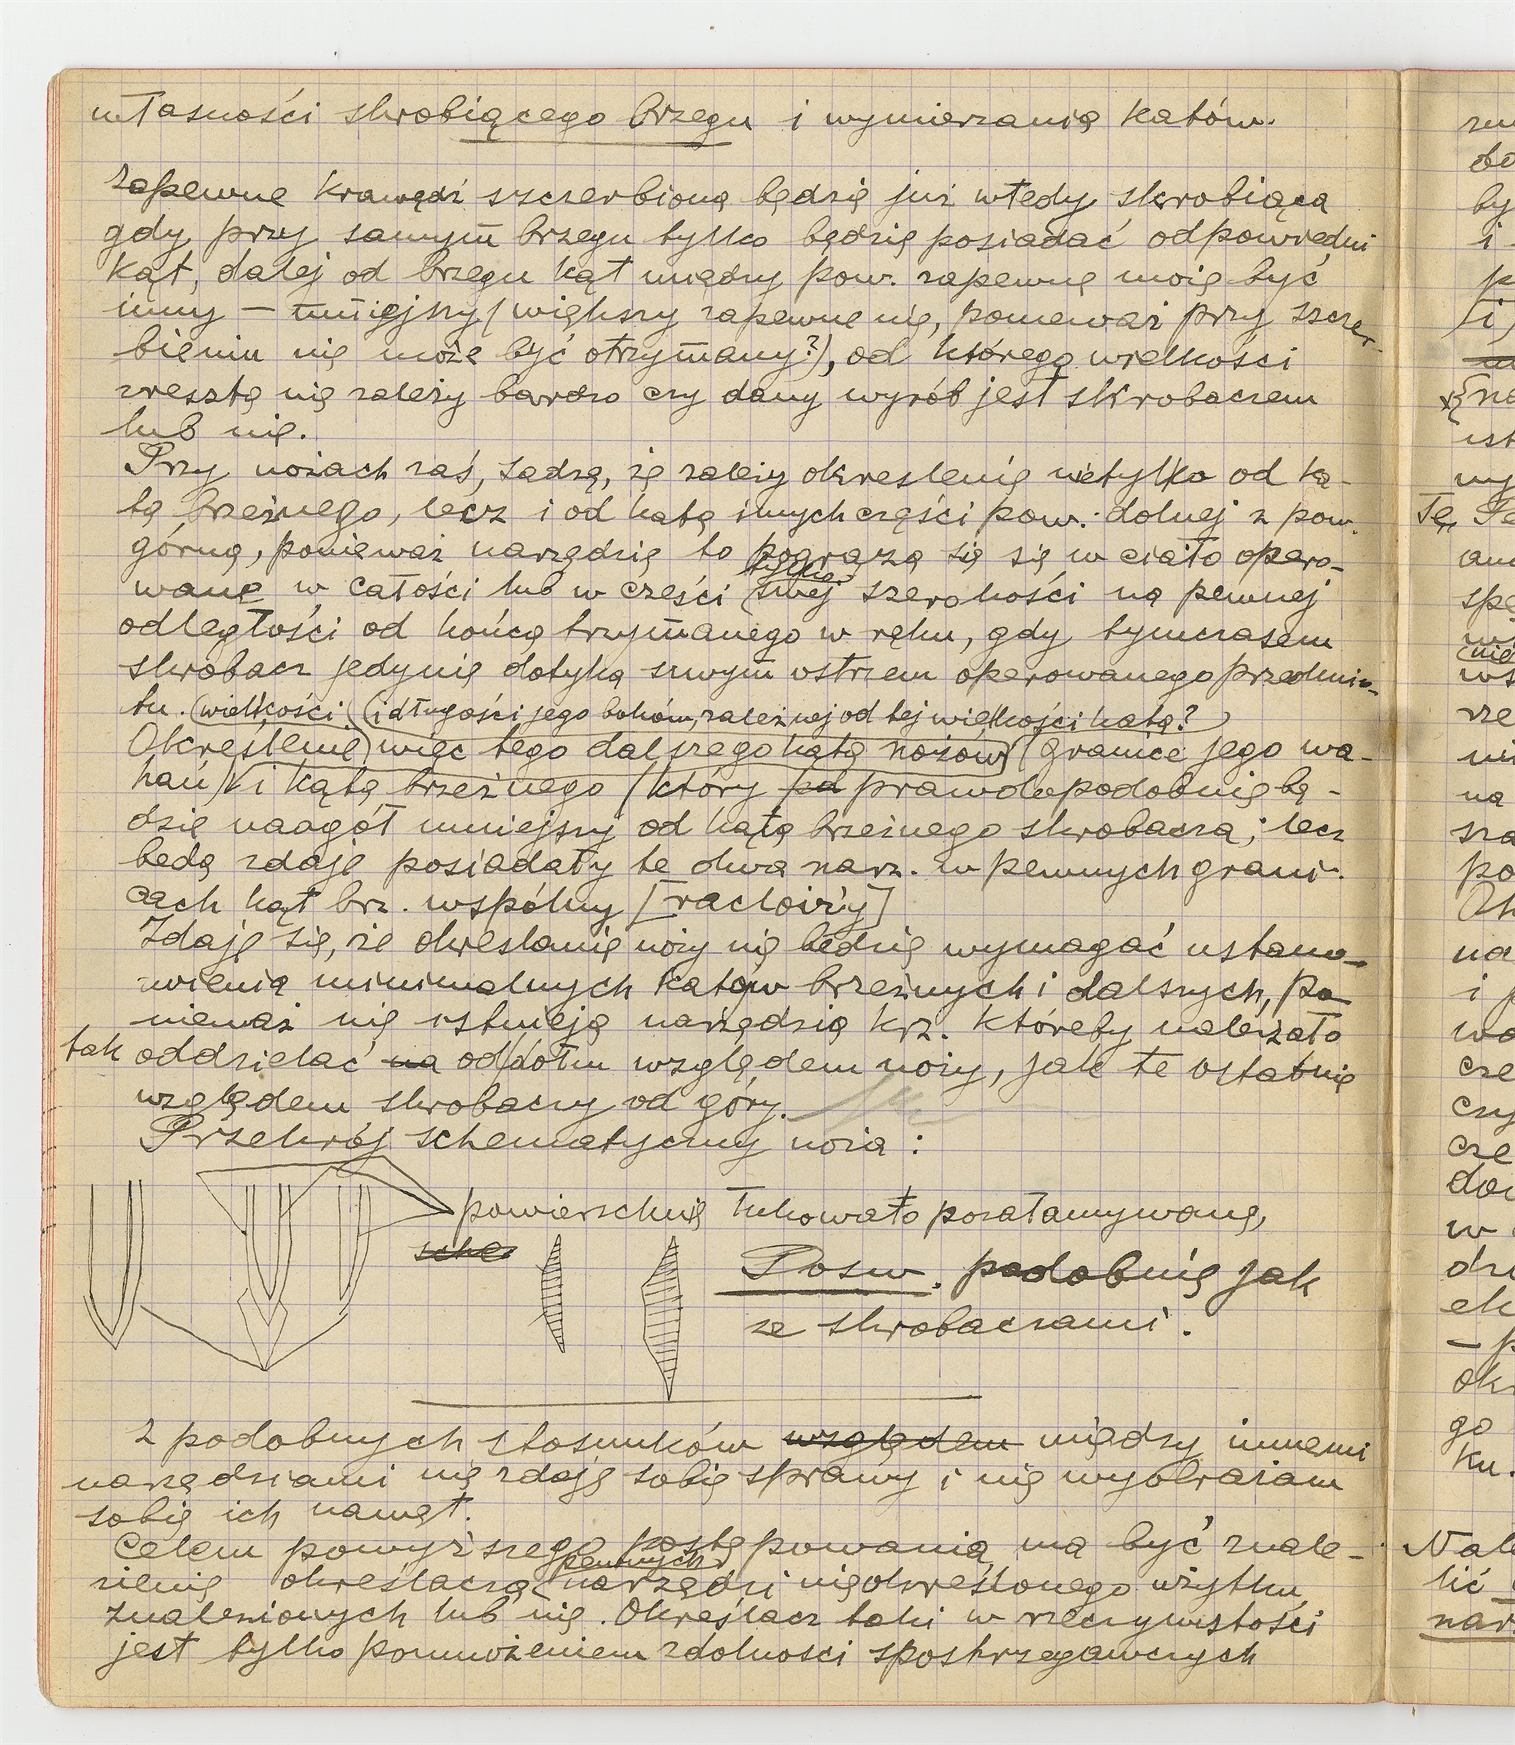 własności skrobiącego brzegu i wymierzania kątów.
Zapewne krawędź szczerbiona będzie już wtedy skrobiąca
gdy przy samym brzegu tylko będzie posiadać odpowiedni
kąt, dalej od brzegu kąt między pow. zapewne może być
inny – mniejszy (większy zapewne nie, ponieważ przy szczer-
bieniu nie może być otrzymany?), od którego wielkości
zresztą nie zależy bardzo czy dany wyrób jest skrobaczem
lub nie.
Przy nożach zaś, sądzę, że zależy określenie nietylko od ką-
ta brzeżnego, lecz i od kąta innych części pow. dolnej z pow.
górną, ponieważ narzędzie to pogrąża się się w ciało opero-
wane w całości lub w części swej szerokości na pewnej
odległości od końca trzymanego w ręku, gdy tymczasem
skrobacz jedynie dotyka swym ostrzem operowanego przedmio-
tu. (wielkości) (i długości jego boków, zależnej od tej wielkości kąta?)
Określenie więc tego dalszego kąta nożów (granice jego wa-
hań) i kąta brzeżnego (który pd prawdopodobnie bę-
dzie naogół mniejszy od kąta brzeżnego skrobacza; lecz
będą zdaje posiadały te dwa narz. w pewnych grani-
cach kąt brz. wspólny [racloir'y]
Zdaje się, że określanie noży nie będzie wymagać ustano-
wienia minimalnych kątów brzeżnych i dalszych, po-
nieważ nie istnieją narzędzia krz. któreby należało
tak oddzielać na od dołu względem noży, jak te ostatnie
względem skrobaczy od góry.
Przekrój schematyczny noża:
powierzchnie łukowato pozałamywane,
sche
Posw. podobnie jak
ze skrobaczami.
Z podobnych stosunków względem między innemi
narzędziami nie zdaję sobie sprawy i nie wyobrażam
sobie ich nawet.
Celem powyższego postępowania ma być znale-
pewnych
zienie określacza narzędzi nieokreślonego użytku,
znalezionych lub nie. Określacz taki w rzeczywistości
jest tylko pomnożeniem zdolności spostrzegawczych